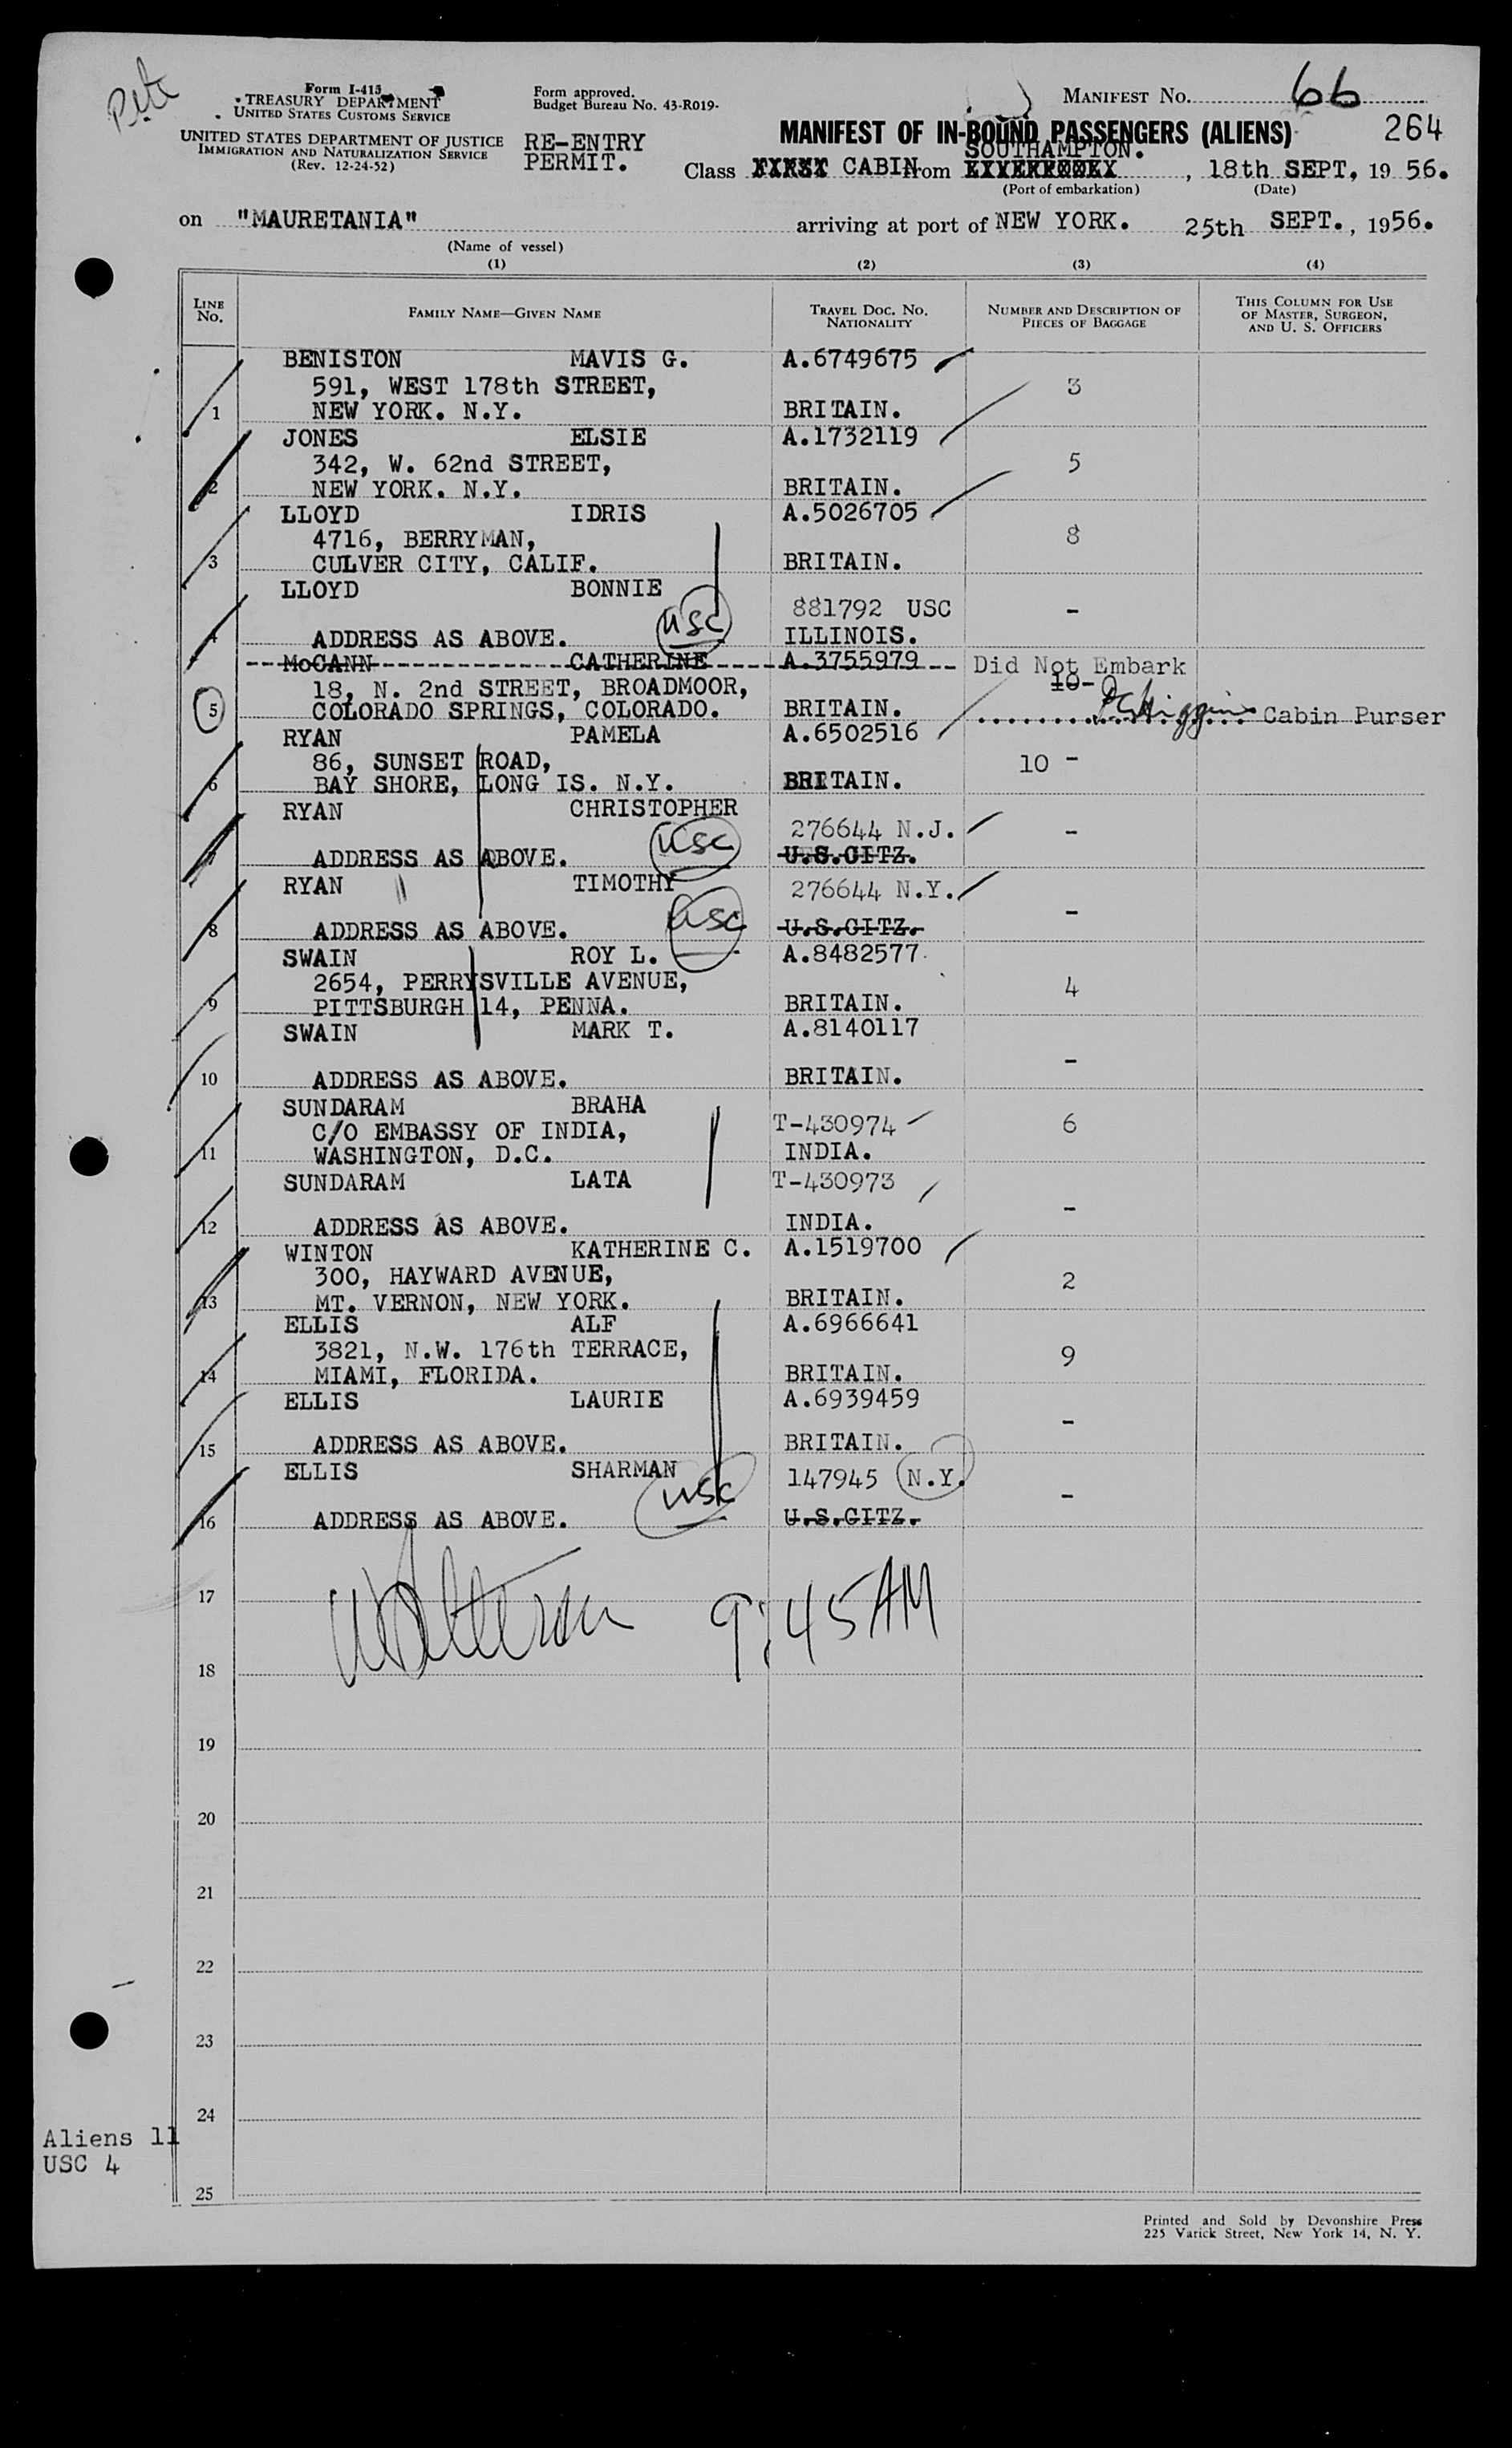 Pete
Form I-415
TREASURY DEPARTMENT
UNITED STATES CUSTOMS SERVICE
UNITED STATES DEPARTMENT OF JUSTICE
IMMIGRATION AND NATURALIZATION SERVICE
(Rev. 12-24-52)
Form approved.
Budget Bureau No. 43-R019-
RE-ENTRY
PERMIT.
MANIFEST No. 66
MANIFEST OF IN-BOUND PASSENGERS (ALIENS) 264
SOUTHAMPTON.
Class FIRST CABIN from , 18th SEPT, 19 56.
(Port of embarkation) (Date)
on "MAURETANIA" arriving at port of NEW YORK. 25th SEPT., 1956.
(Name of vessel)
(1) (2) (3) (4)
LINE No. FAMILY NAME—GIVEN NAME TRAVEL DOC. NO. NATIONALITY NUMBER AND DESCRIPTION OF PIECES OF BAGGAGE THIS COLUMN FOR USE OF MASTER, SURGEON, AND U. S. OFFICERS
BENISTON MAVIS G. A.6749675
591, WEST 178th STREET, 3
1 NEW YORK. N.Y. BRITAIN.
JONES ELSIE A.1732119
342, W. 62nd STREET, 5
2 NEW YORK. N.Y. BRITAIN.
LLOYD IDRIS A.5026705
4716, BERRYMAN, 8
3 CULVER CITY, CALIF. BRITAIN.
LLOYD BONNIE
USC 881792 USC -
4 ADDRESS AS ABOVE. ILLINOIS.
McCANN CATHERINE A.3755979 Did Not Embark
18, N. 2nd STREET, BROADMOOR, 10-0
5 COLORADO SPRINGS, COLORADO. BRITAIN. Higgins Cabin Purser
RYAN PAMELA A.6502516
86, SUNSET ROAD, 10 -
6 BAY SHORE, LONG IS. N.Y. BRITAIN.
RYAN CHRISTOPHER
USC 276644 N.J. -
7 ADDRESS AS ABOVE. U.S.CITZ.
RYAN TIMOTHY 276644 N.Y.
USC -
8 ADDRESS AS ABOVE. U.S.CITZ.
SWAIN ROY L. A.8482577
2654, PERRYSVILLE AVENUE, 4
9 PITTSBURGH 14, PENNA. BRITAIN.
SWAIN MARK T. A.8140117
-
10 ADDRESS AS ABOVE. BRITAIN.
SUNDARAM BRAHA
C/O EMBASSY OF INDIA, T-430974 6
11 WASHINGTON, D.C. INDIA.
SUNDARAM LATA T-430973
-
12 ADDRESS AS ABOVE. INDIA.
WINTON KATHERINE C. A.1519700
300, HAYWARD AVENUE, 2
13 MT. VERNON, NEW YORK. BRITAIN.
ELLIS ALF A.6966641
3821, N.W. 176th TERRACE, 9
14 MIAMI, FLORIDA. BRITAIN.
ELLIS LAURIE A.6939459
-
15 ADDRESS AS ABOVE. BRITAIN.
ELLIS SHARMAN 147945 N.Y.
USC -
16 ADDRESS AS ABOVE. U.S.CITZ.
17
9:45 AM
18
19
20
21
22
23
24
Aliens 11
USC 4
25
Printed and Sold by Devonshire Press
225 Varick Street, New York 14, N. Y.